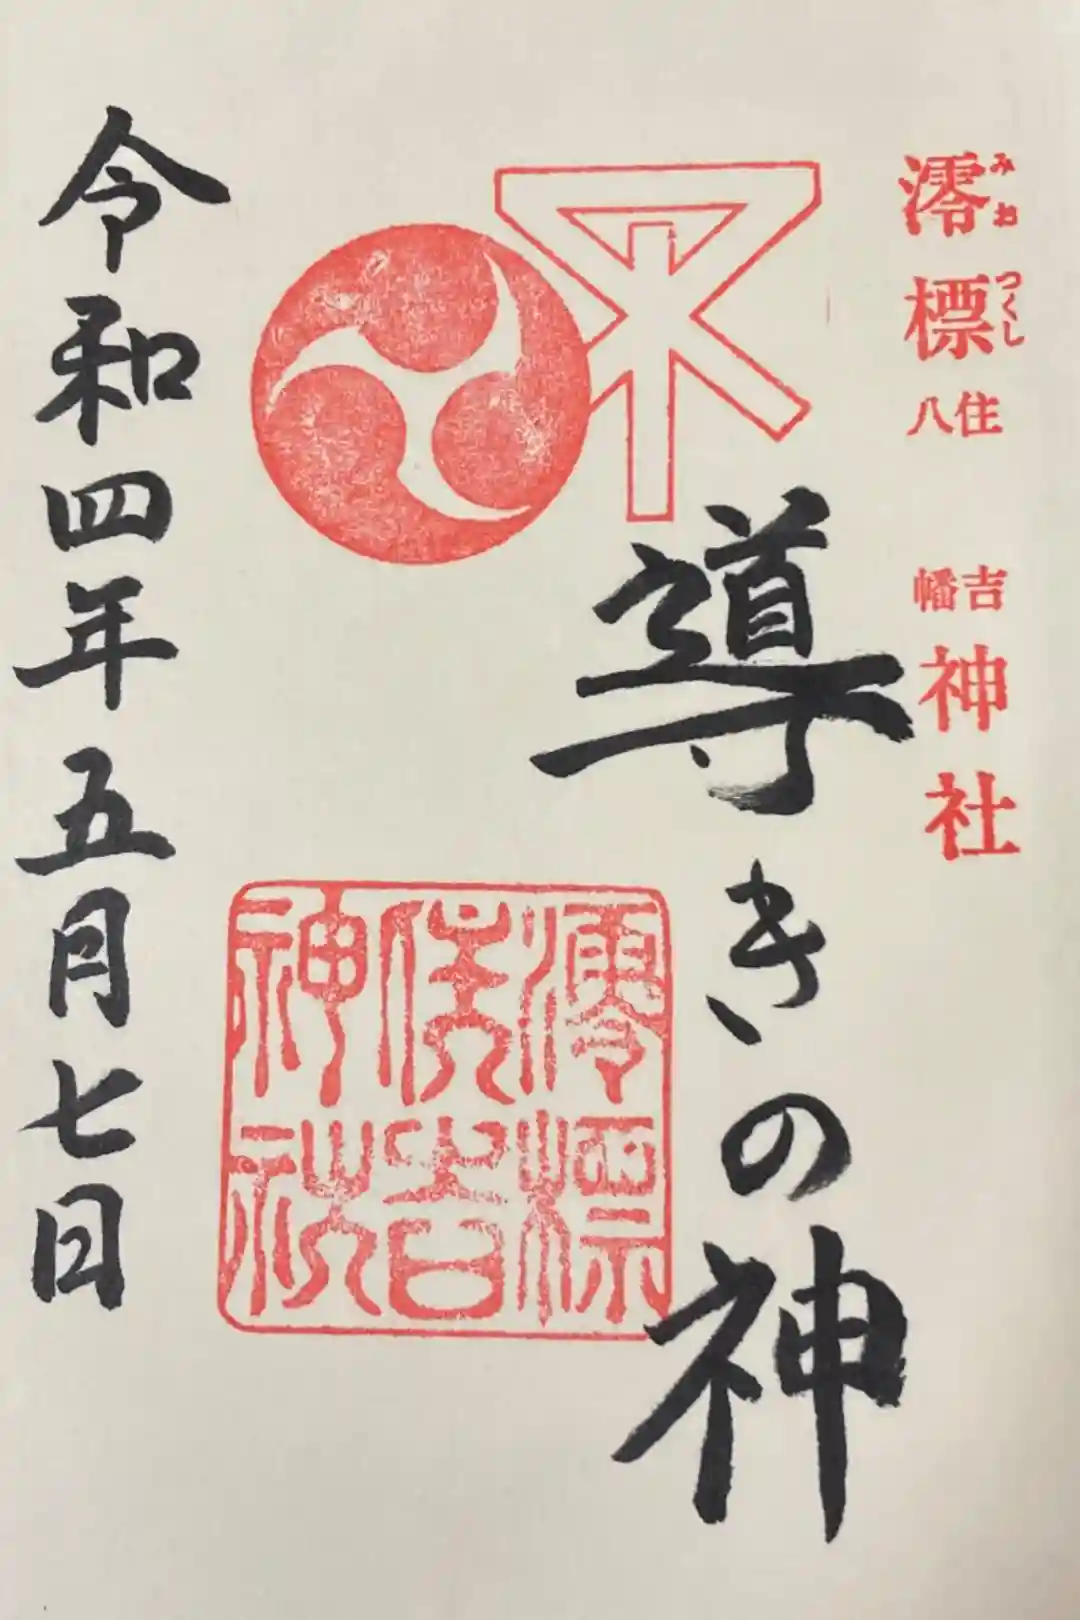 澪標住吉八幡神社
みおつくし
導きの神
澪標
住吉
神社
令和四年五月七日